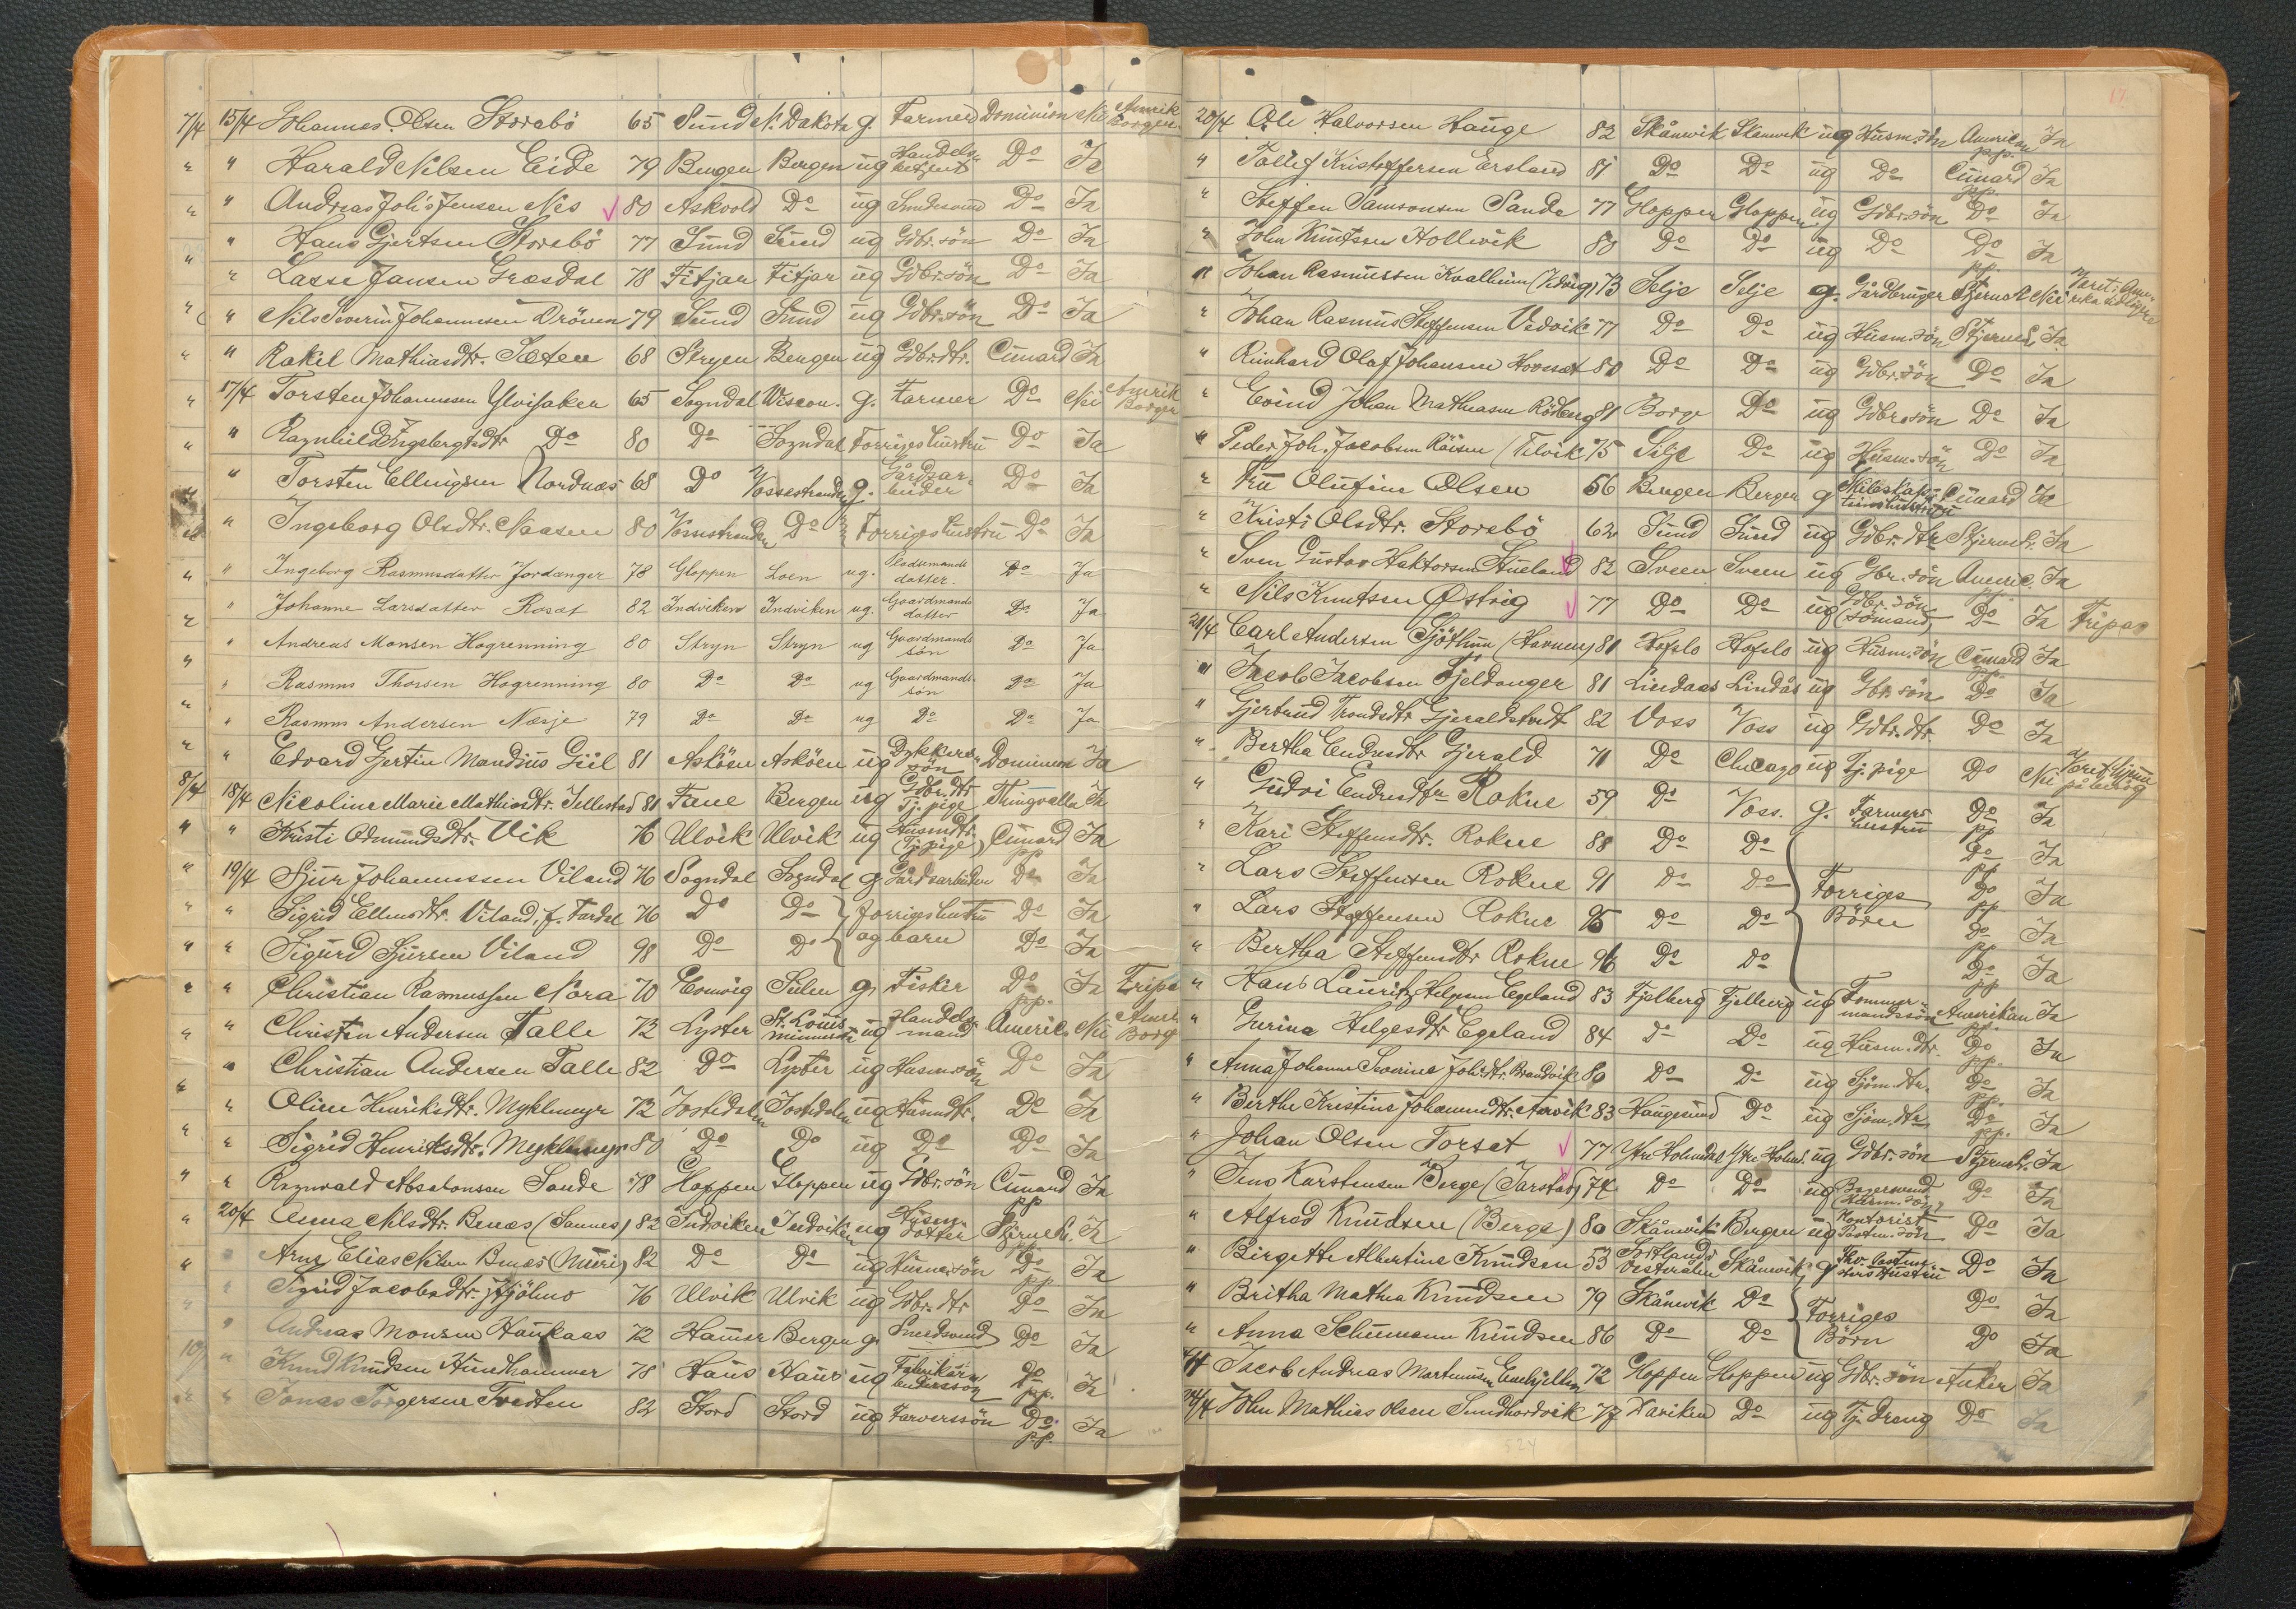 7/4 15/4 Johannes Olsen Storebö 65 Sund N. Dakota g. Farmer Dominion Nei Amerik Borger
" " Harald Nilsen Eide 79 Bergen Bergen ug Handelsbetjent Do Ja
" " Andreas Joh's Jensen Nes 80 Askvold Do ug Smedesvend Do Ja
" " Hans Gjertsen Storebö 77 Sund Sund ug Gdbr. sön Do Ja
" " Lasse Jansen Græsdal 78 Fitjar Fitjar ug Gdbr. sön Do Ja
" " Nils Severin Johannesen Drönen 79 Sund Sund ug Gdbr. sön Do Ja
" " Rakil Mathiasdtr. Sæten 68 Stryen Bergen ug Gdbr.dtr. Cunard Ja
" 17/4 Torsten Johannesen Ylvisaker 65 Sogndal Wiscon. g. Farmer Do Nei Amerik Borger
" " Ragnhild Ingebrigtsdtr Do 80 Do Sogndal Forriges hustru Do Ja
" " Torsten Ellingsen Nordnæs 68 Do Vossestranden g. Gårdsarbeider Do Ja
" " Ingeborg Olsdtr. Naasen 80 Vossestranden Do Forriges hustru Do Ja
" " Ingeborg Rasmusdatter Jordanger 78 Gloppen Loen ug. Pladsmands datter. Do Ja
" " Johanne Larsdatter Roset 82 Indviken Indviken ug. Gaardmands datter Do Ja
" " Andreas Monsen Hogrenning 80 Stryn Stryn ug Gaardmands sön Do Ja
" " Rasmus Thorsen Hogrenning 80 Do Do ug Gaardmands sön Do Ja
" " Rasmus Andersen Næsje 79 Do Do ug Do Do Ja
" " Edvard Gjertin Mandius Giil 81 Asköen Asköen ug Dykkers sön Dominion Ja
8/4 18/4 Nicoline Marie Mathiasdtr. Tellestad 81 Fane Bergen ug Gdbr.dtr Tj. pige Thingvalla Ja
" " Kristi Odmundsdtr. Vik 76 Ulvik Ulvik ug Husmdtr. (Tj. pige) Cunard pp. Ja
" 19/4 Sjur Johannessen Viland 76 Sogndal Sogndal g Gårdsarbeider Do Ja
" " Sigrid Ellensdtr. Viland, f. Fardal 76 Do Do forriges hustru Do Ja
" " Sigurd Sjursen Viland 98 Do Do og barn Do Ja
" " Christian Rasmussen Nora 70 Evenvig Sulen g. Fisker Do pp. Ja Fripas
" " Christen Andersen Talle 72 Lyster St. Louis Minnesota ug Handelsmand Americ. Nei Amer. Borg
" " Christian Andersen Talle 82 Do Lyster ug Husm. sön Do Ja
" " Oline Henriksdtr. Myklemyr 72 Jostedalen Jostedalen ug Husmdtr. Do Ja
" " Sigrid Henriksdtr. Myklemyr 80 Do Do ug Do Do Ja
" " Ragnvald Absalonsen Sande 78 Gloppen Gloppen ug Gdbr. sön Cunard pp Ja
" 20/4 Anna Nilsdtr. Benæs (Sannes) 82 Indviken Indviken ug Husm. datter Stjernel. pp. Ja
" " Arne Elias Nilsen Benæs (Muri) 82 Do Do ug Husm. sön Do pp Ja
" " Sigrid Jacobsdtr. Hjölmo 76 Ulvik Ulvik ug Gdbr. dtr Do Ja
" " Andreas Monsen Haukaas 72 Hammer Bergen g. Smedsvend Do Ja
10/ " Knud Knudsen Hundhammer 78 Haus Haus ug Fabrikarbeidersson Do pp. Ja
" " Jonas Torgersen Tvedten 82 Stord Stord ug Farverssön Do p.p. Ja
17.
20/4 Ole Halvorsen Hauge 82 Skånevik Skånevik ug Husm. sön American pp. Ja
" Tollef Kristoffersen Ersland 81 Do Do ug Do Cunard pp. Ja
" Steffen Samsonsen Sande 77 Gloppen Gloppen ug Gdbr. sön Do Ja
" John Knutsen Hollevik 80 Do Do ug Do Do pp. Ja
" Johan Rasmussen Kvalheim 73 Selje Selje g. Gårdbruger Stjernel. Nei Været i Amerika tidligere
" Johan Rasmus Steffensen Vedvik 77 Do Do ug Husm. sön Stjernel. Ja
" Reinhard Olaf Johansen Hovset 80 Do Do ug Gdbr. sön Do Ja
" Evind Johan Mathiasen Rödberg 81 Borge Do ug Gdbr. sön Do Ja
" Peder Joh. Jacobsen Räisen (Ulvik 75 Selje Do ug Husm. sön Do Ja
" Fru Olufine Olsen 56 Bergen Bergen g Skibskapteins hustru Cunard Ja
" Kristi Olsdtr. Storebö 62 Sund Sund ug Gdbr. dtr Stjernel. Ja
" Sven Gustav Haktorsen Stueland 82 Sveen Sveen ug Gbr. sön Americ. pp. Ja
" Nils Knutsen Østvig 77 Do Do ug Gdbr. sön (sömand) Do Ja Fripas
21/4 Carl Andersen Sjöthun (Havnen) 81 Hofslo Hofslo ug Husm. sön Cunard pp. Ja
" Jacob Jacobsen Fjeldanger 81 Lindaas Lindås ug Gbr. sön Do Ja
" Gjertrud Trondsdtr Gjeraldstvedt 82 Voss Voss ug Gdbr. dtr. Do Ja
" Bertha Endresdtr Gjerald 71 Do Chicago ug Tj. pige Do Nei Været hjemme på besög
" Gudvi Endresdtr Rokne 59 Do Voss. g. Farmers hustru Do pp Ja
" Kari Steffensdtr. Rokne 88 Do Do Do pp Ja
" Lars Steffensen Rokne 91 Do Do Forriges Do pp Ja
" Lars Steffensen Rokne 95 Do Do Börn Do pp Ja
" Bertha Steffensdtr Rokne 96 Do Do Do pp Ja
" Hans Lauritz Helgesen Egeland 83 Fjelberg Fjelberg ug Tømmermandssön Amerikan pp. Ja
" Gurina Helgesdtr Egeland 84 Do Do ug Husm. dtr. Do pp. Ja
" Anna Johanne Severine Joh'sdtr. Brandvik 80 Do Do ug Sjöm. dtr. Do pp. Ja
" Berthe Kristine Johannesdtr. Aavik 83 Haugesund Do ug Sjöm. dtr. Do pp. Ja
" Johan Olsen Torset 77 Ytre Holmdal Ytre Holmd. ug Gdbr. sön Stjernel. Ja
" Jens Karstensen Berge (Jarstad) 74 Do Do ug Bagersvend (Husm. sön) Do Ja
" Alfred Knudsen (Berge) 80 Skånevik Bergen ug Kontorist Postm. sön Do Ja
" Birgette Albertine Knudsen 53 Sortland Vesterålen Skånevik g Fhv. Postmesters Hustru Do Ja
" Britha Mathea Knudsen 79 Skånevik Do Forriges Do Ja
" Anna Schumann Knudsen 86 Do Do Börn Do Ja
" Jacob Andreas Martinusen 72 Gloppen Gloppen ug Gdbr. sön Anker Ja
24/4 John Mathias Olsen Sundhordvik 77 Daviken Do ug Tj. Dreng Do Ja